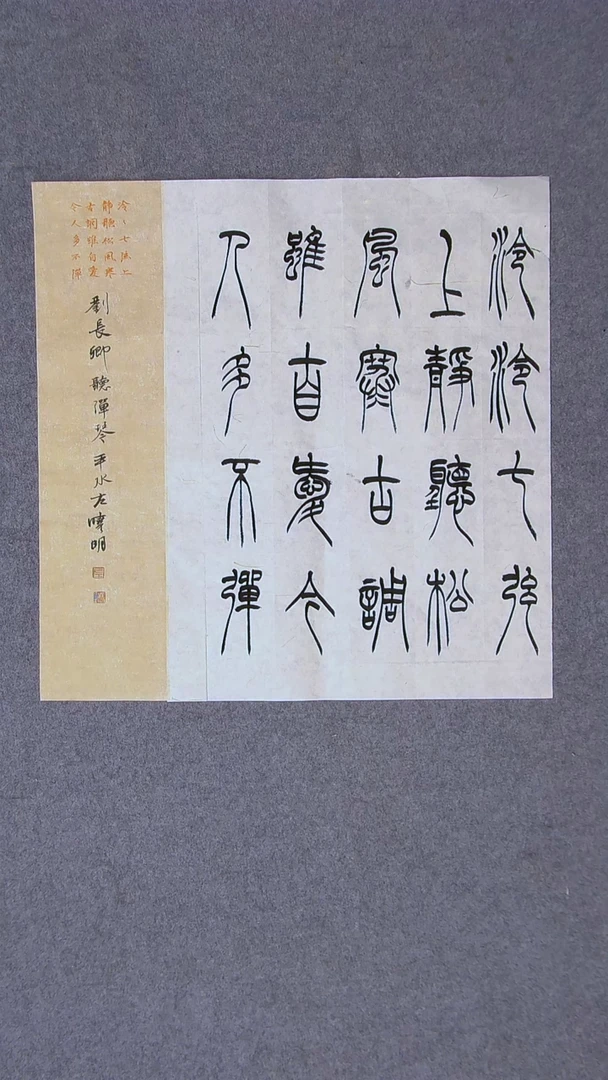 泠泠七弦
上靜聽松
風寒古調
雖自愛今
人多不彈
泠丶七弦上
靜聽松風寒
古調雖自愛
今人多不彈
劉長卿聽彈琴平水左暐明